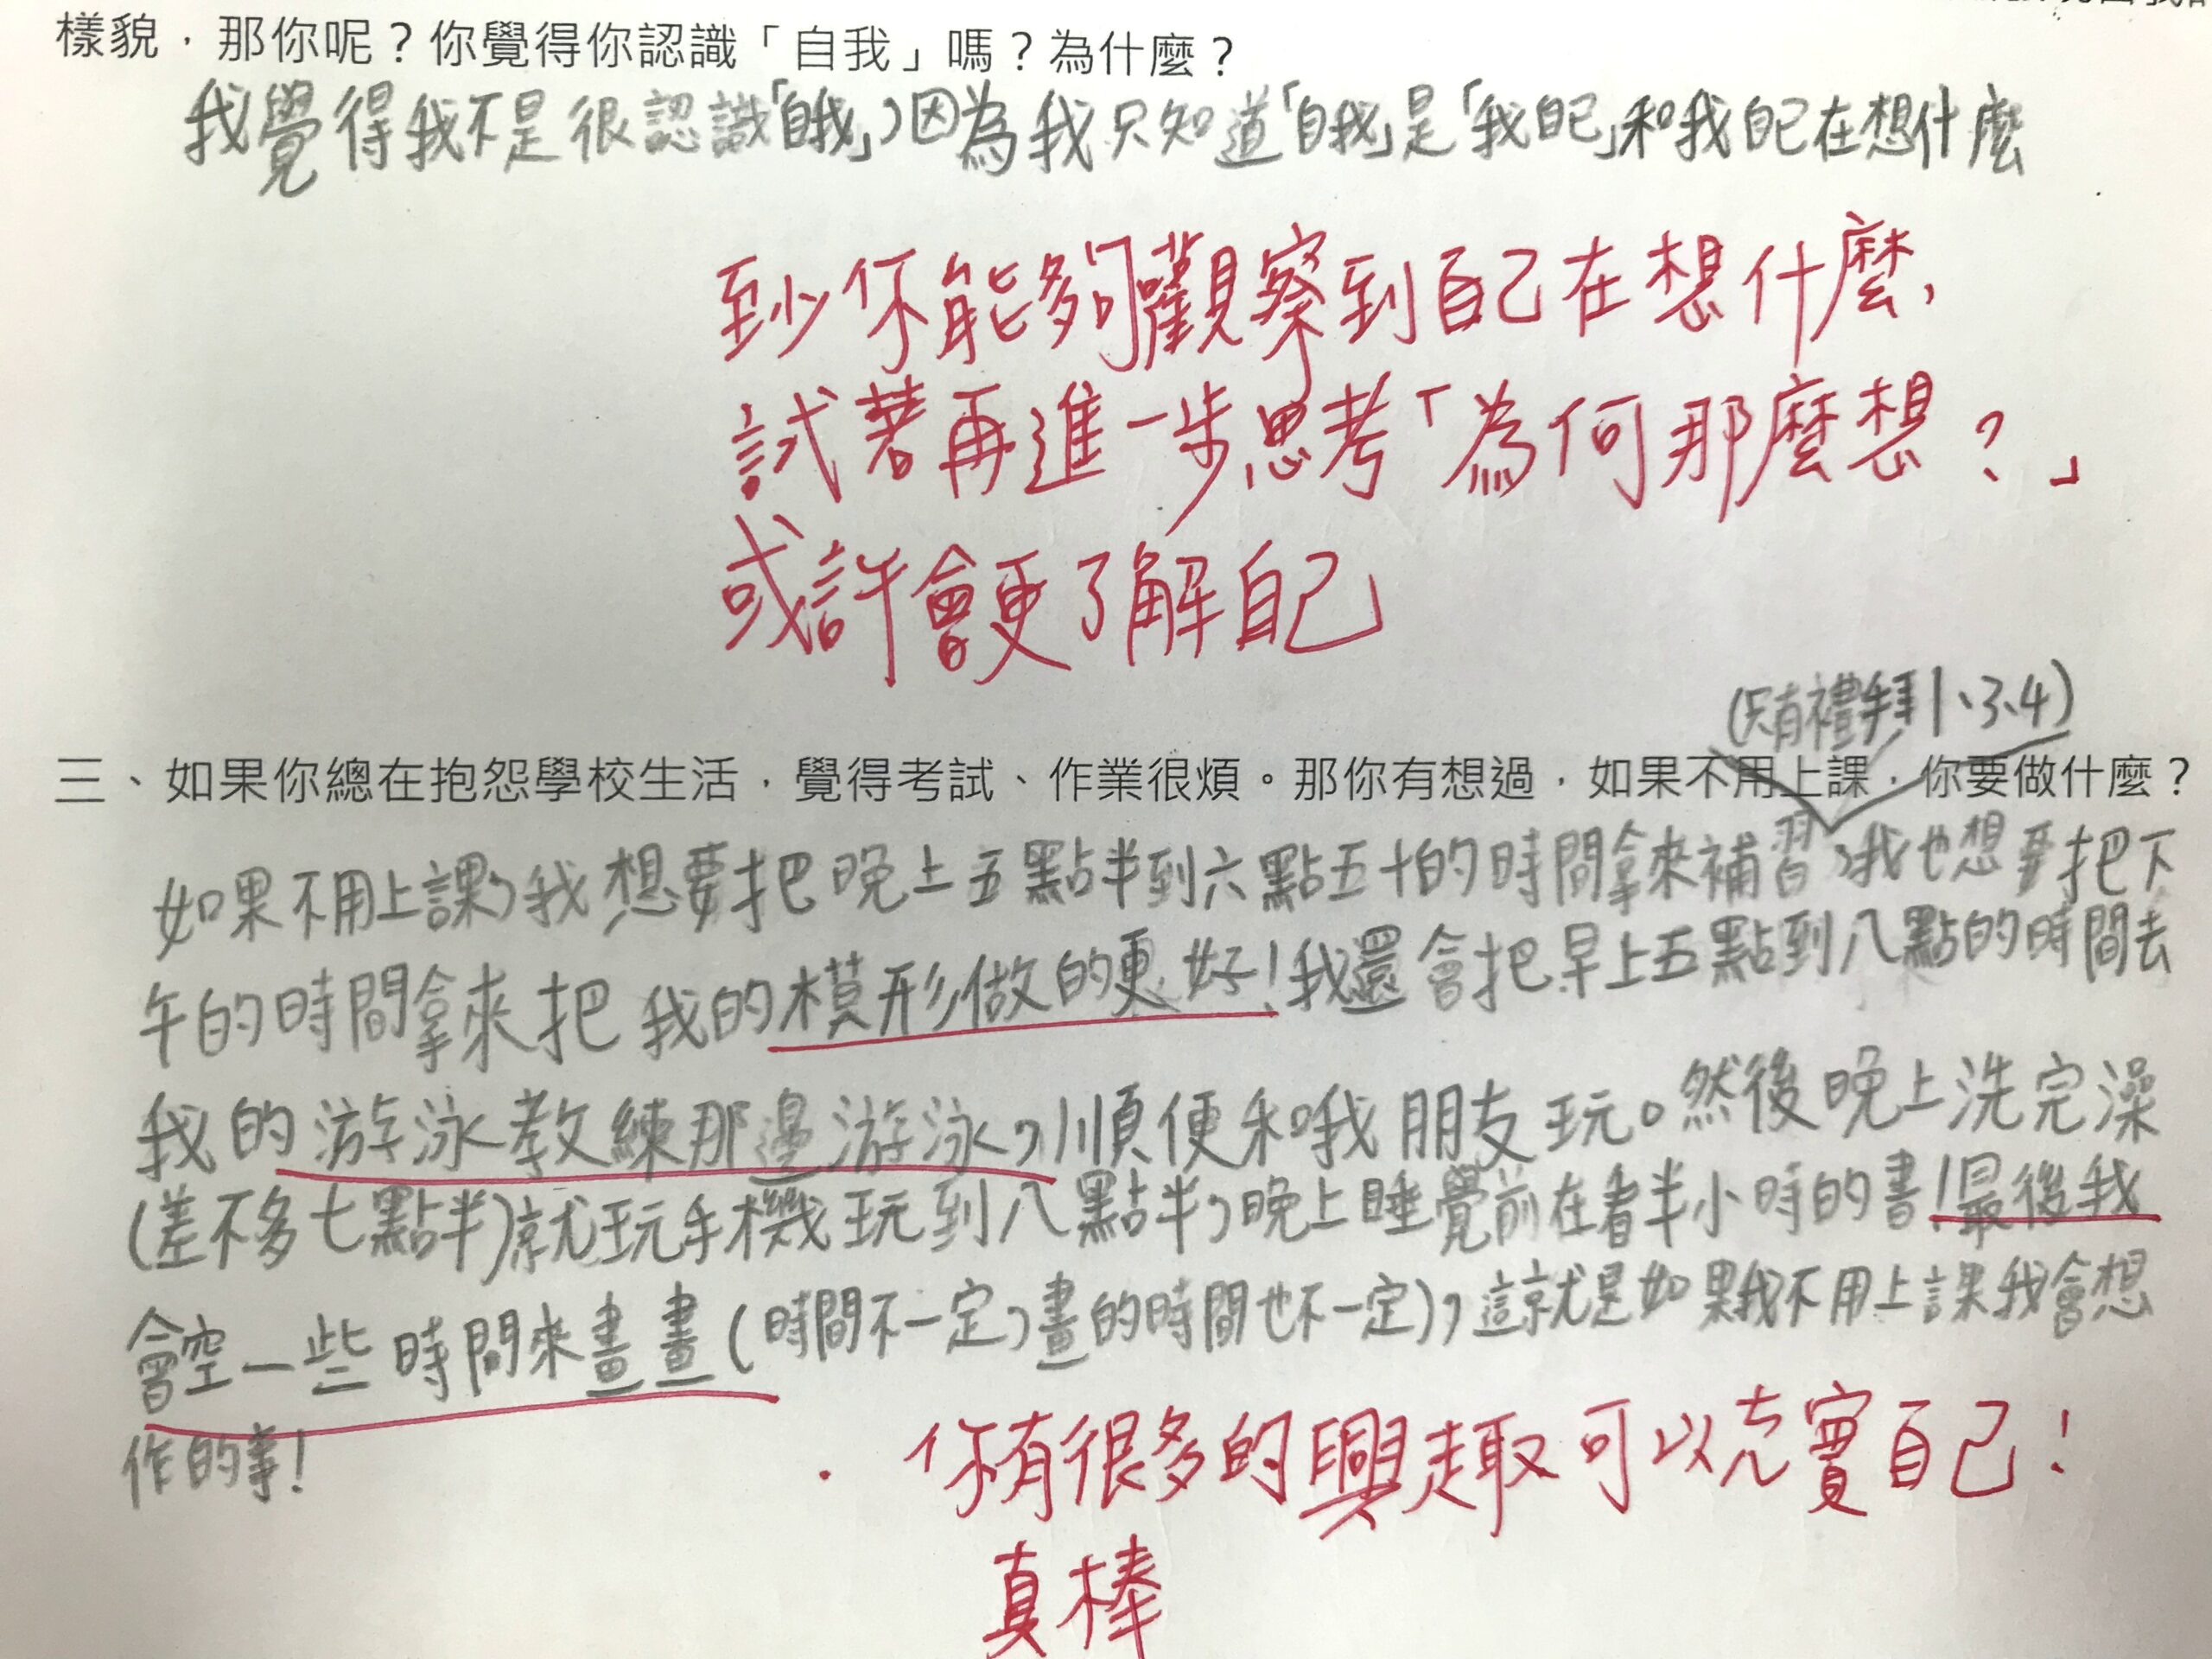 樣貌，那你呢？你覺得你認識「自我」嗎？為什麼？
我覺得我不是很認識「自我」，因為我只知道「自我」是「我自己」和我自己在想什麼
至少你能夠觀察到自己在想什麼，
試著再進一步思考「為何那麼想？」
或許會更了解自己
(只有禮拜1、3、4)
三、如果你總在抱怨學校生活，覺得考試、作業很煩。那你有想過，如果不用上課，你要做什麼？
如果不用上課，我想要把晚上五點半到六點五十的時間拿來補習，我也想要把下
午的時間拿來把我的模形做的更好！我還會把早上五點到八點的時間去
我的游泳教練那邊游泳，順便和我朋友玩。然後晚上洗完澡
(差不多七點半)就玩手機玩到八點半，晚上睡覺前在看半小時的書！最後我
會空一些時間來畫畫(時間不一定，畫的時間也不一定)，這就是如果我不用上課我會想
作的事！
你有很多的興趣可以充實自己！
真棒